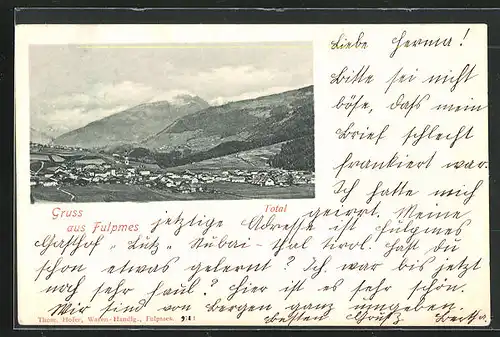 Liebe Herma!
Bitte sei nicht
böse, daß mein
Brief schlecht
frankiert war.
Ich hatte mich
geirrt. Meine
Gruss
aus Fulpmes
Total
jetzige Adresse ist Fulpmes
Gasthof „Lutz" Stubai-thal tirol. Hast du
schon etwas gelernt? Ich war bis jetzt
noch sehr faul! Hier ist es sehr schön.
Wir sind von Bergen ganz umgeben.
Besten Gruß Bertha.
Thom. Hofer, Waren-Handlg., Fulpmes.